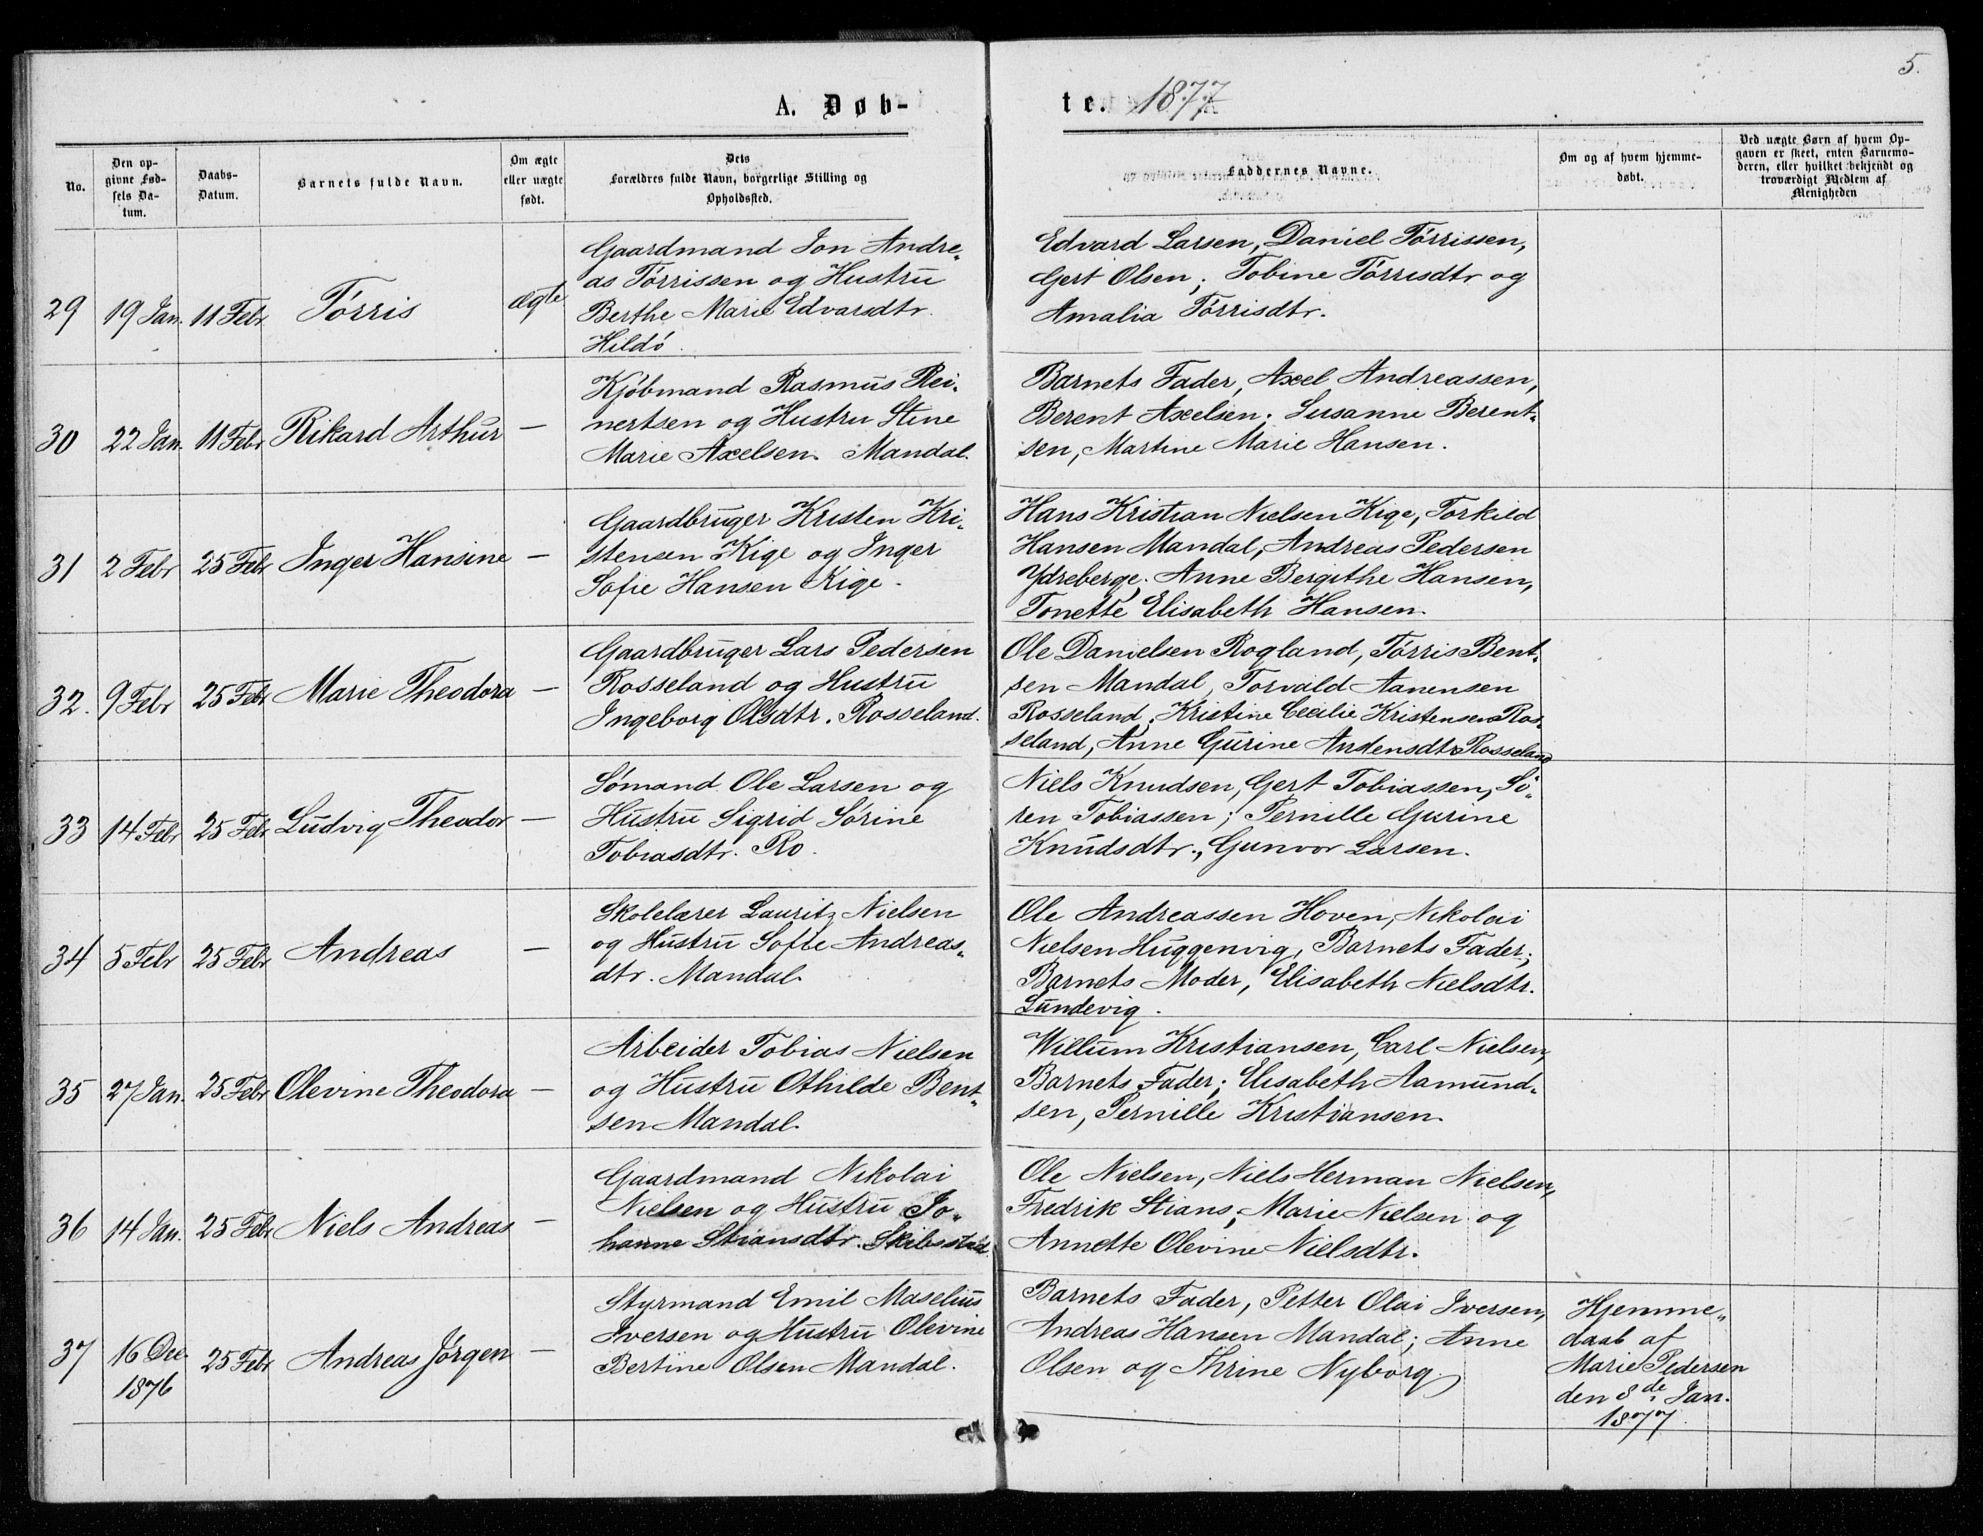 5.
A. Døb-
te. 1877
No.
Den op-
givne Fød-
sels Da-
tum.
Daabs-
Datum.
Barnets fulde Navn.
Om ægte
eller uægte
født.
Dets
Forældres fulde Navn, borgerlige Stilling og
Opholdssted.
Faddernes Navne.
Om og af hvem hjemme-
døbt.
Ved uægte Børn af hvem Op-
gaven er skeet, enten Barnemo-
deren, eller hvilket bekjendt og
troværdigt Medlem af
Menigheden
29
19 Jan.
11 Febr
Tórris
ægte
Gaardmand Jon Andre-
as Tórrissen og Hustru
Berthe Marie Edvarsdtr.
Hildó.
Edvard Larsen, Daniel Tórrissen,
Gert Olsen; Tobine Tórrisdtr og
Amalia Tórrisdtr.
30
22 Jan.
11 Febr
Rikard Arthur
—
Kjóbmand Rasmus Rei-
nertsen og Hustru Stine
Marie Axelsen. Mandal.
Barnets Fader, Axel Andreassen,
Berent Axelsen; Susanne Berent-
sen, Martine Marie Hansen.
31
2 Febr
25 Febr
Inger Hansine
—
Gaardbruger Kristen Kri-
stensen Kige og Inger
Sofie Hansen Kige.
Hans Kristian Nielsen Kige, Torkild
Hansen Mandal, Andreas Pedersen
Ydreberge. Anne Bergithe Hansen,
Tonette Elisabeth Hansen.
32.
9 Febr
25 Febr
Marie Theodora
—
Gaardbruger Lars Pedersen
Rosseland og Hustru
Ingeborg Olsdtr. Rosseland.
Ole Danielsen Rogland, Tórris Bent-
sen Mandal, Torvald Aanensen
Rosseland; Kristine Cecilie Kristensen Ros-
seland, Anne Gurine Andensdtr Rosseland
33
14 Febr
25 Febr
Ludvig Theodor
—
Sómand Ole Larsen og
Hustru Sigrid Sórine
Tobiasdtr. Ro.
Niels Knudsen, Gert Tobiassen, Só-
ren Tobiassen; Pernille Gurine
Knudsdtr., Gunvor Larsen.
34
5 Febr
25 Febr
Andreas
—
Skolelærer Lauritz Nielsen
og Hustru Sofie Andreas-
dtr. Mandal.
Ole Andreassen Hoven, Nikolai
Nielsen Huggenvig, Barnets Fader;
Barnets Moder, Elisabeth Nielsdtr.
Lundevig.
35
27 Jan.
25 Febr
Olevine Theodora
—
Arbeider Tobias Nielsen
og Hustru Othilde Bent-
sen Mandal.
Willum Kristiansen, Carl Nielsen,
Barnets Fader; Elisabeth Aamund-
sen, Pernille Kristiansen.
36
14 Jan.
25 Febr
Niels Andreas
—
Gaardmand Nikolai
Nielsen og Hustru Jo-
hanne Stiansdtr. Skibsstad
Ole Nielsen, Niels Herman Nielsen,
Fredrik Stians; Marie Nielsen og
Annette Olevine Nielsdtr.
37
16 Dec.
1876
25 Febr
Andreas Jórgen
—
Styrmand Emil Maselius
Iversen og Hustru Olevine
Bertine Olsen Mandal.
Barnets Fader, Petter Olai Iversen,
Andreas Hansen Mandal; Anne
Olsen og Thrine Nyborg.
Hjemme-
daab af
Marie Pedersen
den 8de Jan.
1877.